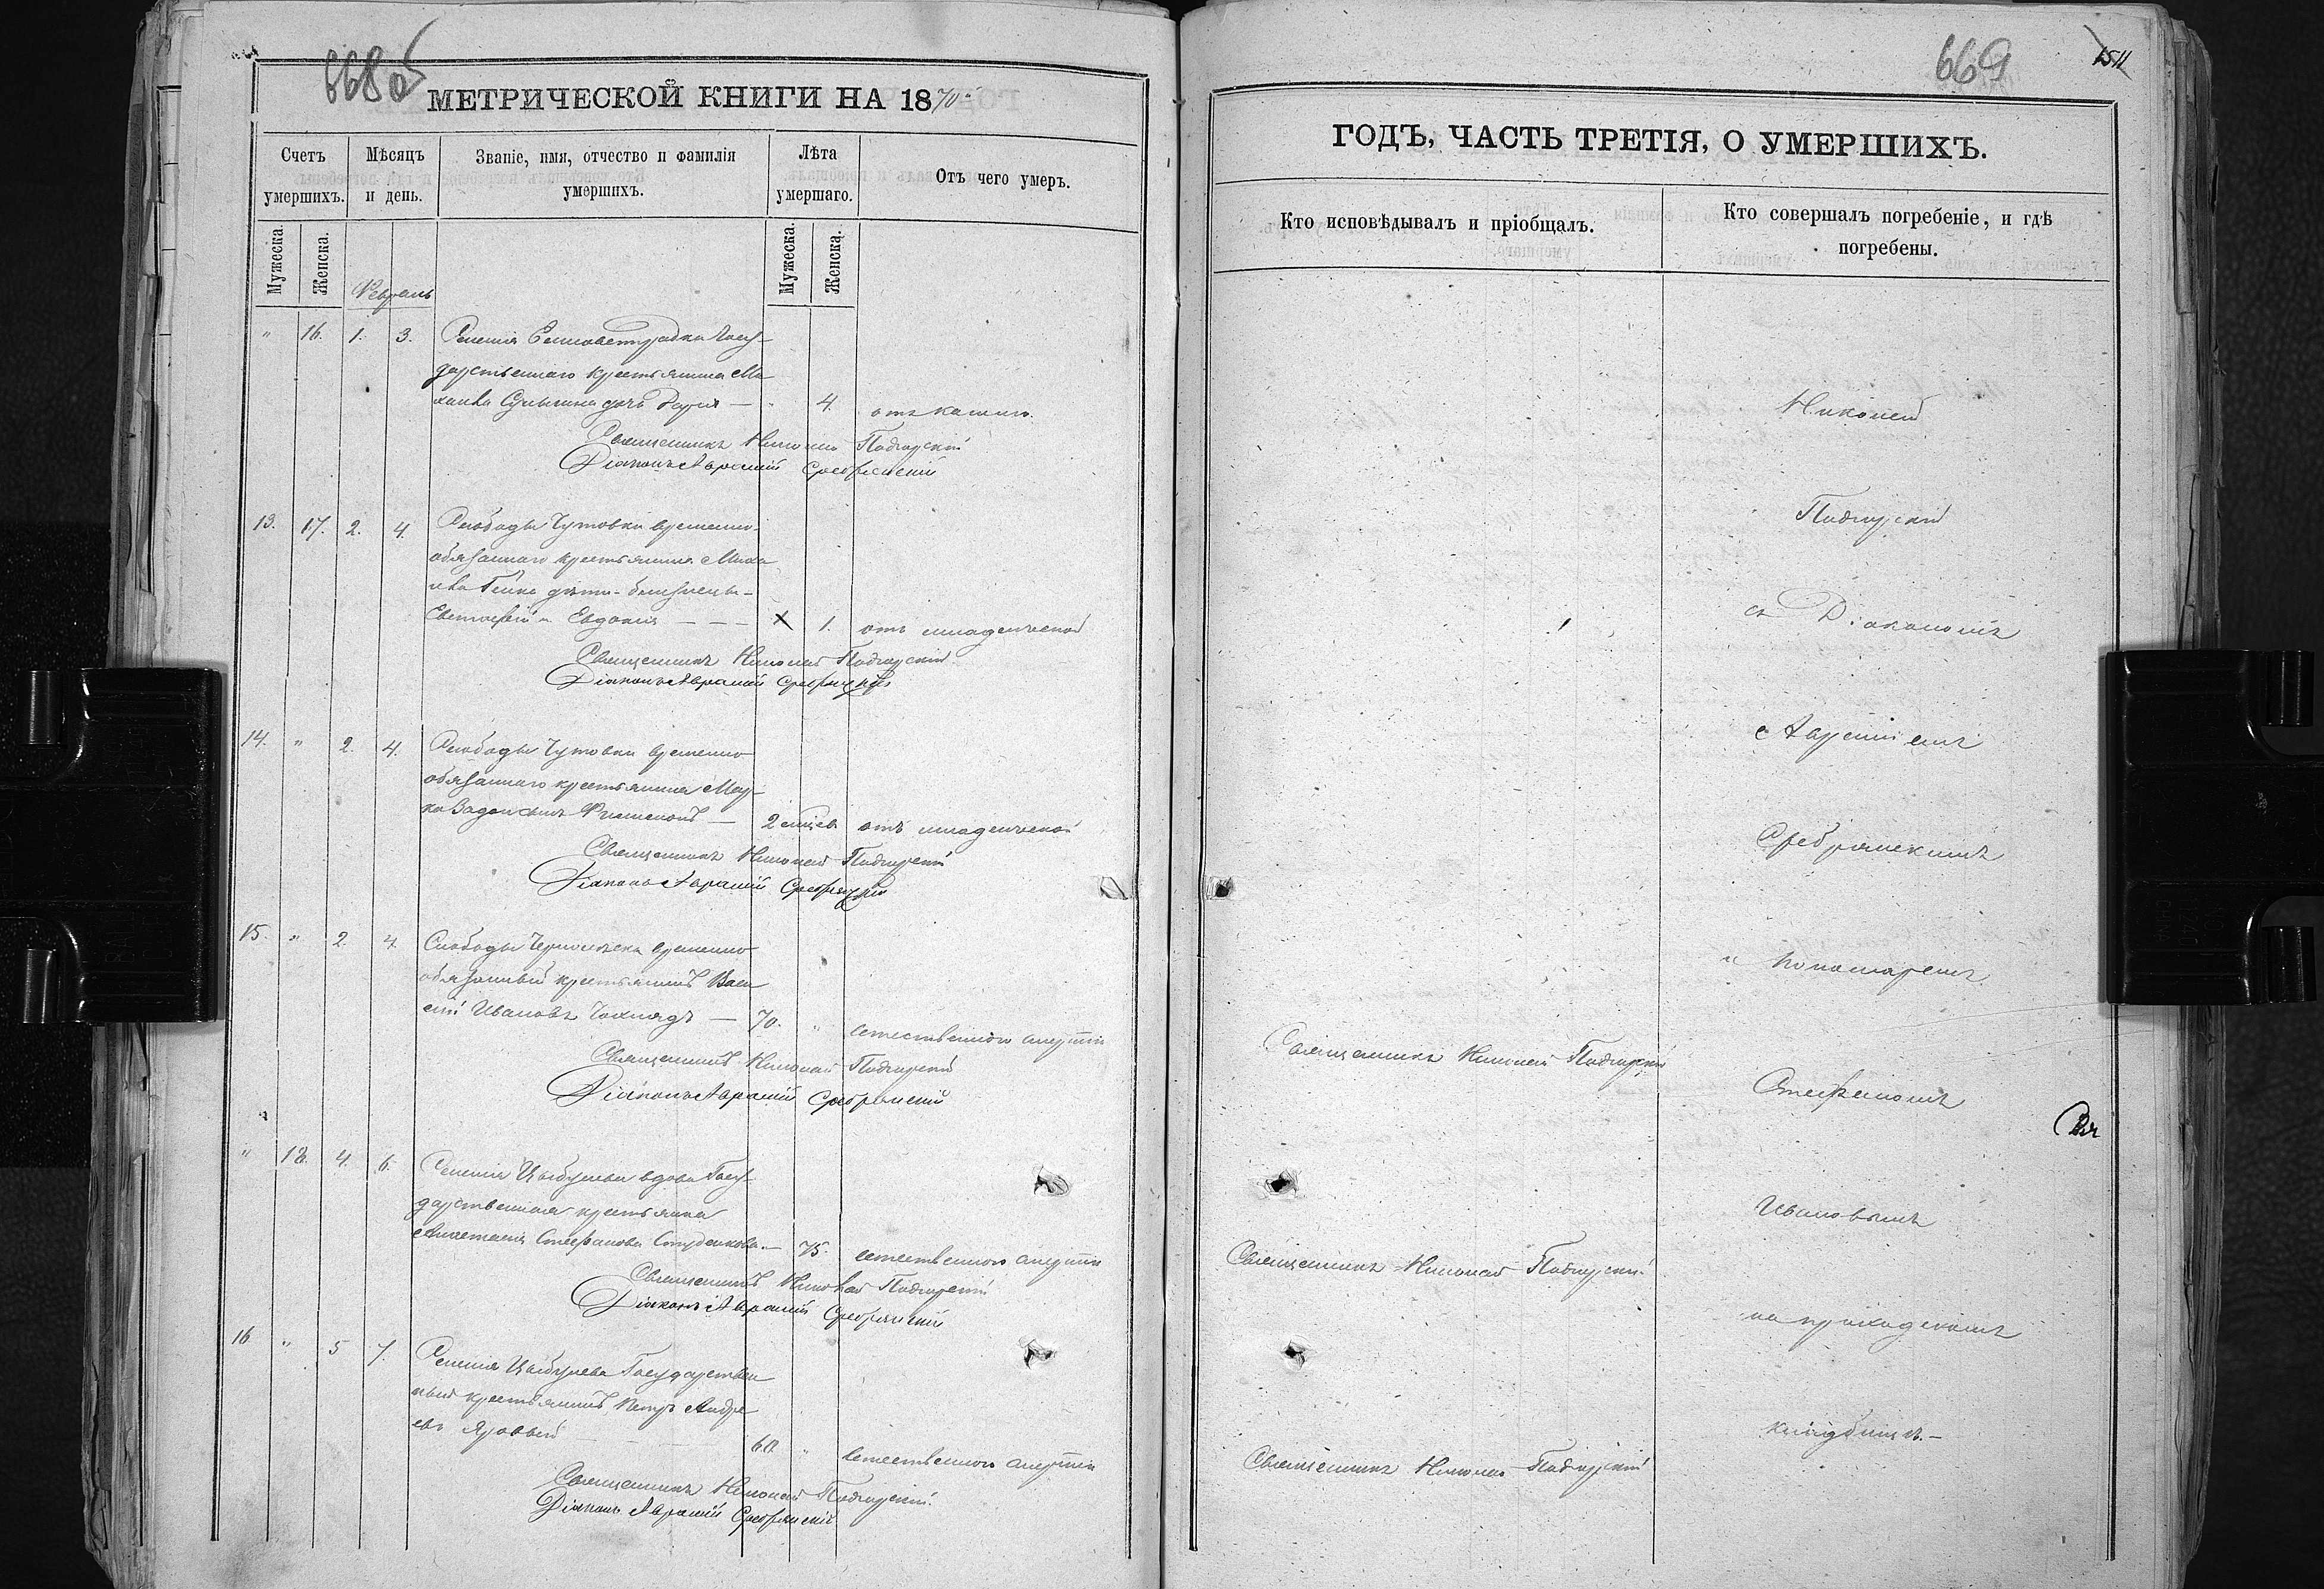 668об
МЕТРИЧЕСКОЙ КНИГИ НА 1870й
Счетъ умершихъ.
Мѣсяцъ и день.
Званіе, имя, отчество и фамилія умершихъ.
Лѣта умершаго.
Отъ чего умеръ.
Мужеска.
Женска.
Февраль
Мужеска.
Женска.
" 16. 1. 3. Селенія Госу-
дарственнаго крестьянина Ми
хаила дочь - " 4. отъ кашлю.
Священникъ Николай Подгурскій
Діаконъ Аврамій Сребрянскій
13. 17. 2. 4. Слободы Чутовки временно-
обязаннаго крестьянина Миха
ила дѣти-близнецы-
и Евдокія - - - 1. отъ младенческой
Священникъ Николай Подгурскій
Діаконъ Аврамій Сребрянскій
14. " 2. 4. Слободы Чутовки временно
обязаннаго крестьянина Мар-
ка сынъ - 2 мѣсяц отъ младенческой
Священникъ Николай Подгурскій
Діаконъ Аврамій Сребрянскій
15. " 2. 4. Слободы временно
обязанный крестьянинъ Васи
лій Ивановъ - 70. " естественною смертію
Священникъ Николай Подгурскій
Діаконъ Аврамій Сребрянскій
" 18. 4. 6. Селенія Цыбулева вдова Госу-
дарственная крестьянка
Анастасія Стефанова Студенкова. - 75. естественною смертію
Священникъ Николай Подгурскій
Діаконъ Аврамій Сребрянскій
16 " 5 7. Селенія Цыбулева Государствен
ный крестьянинъ Петръ Андре
евъ Яровый - 60. " естественною смертію
Священникъ Николай Подгурскій.
Діаконъ Аврамій Сребрянскій
669
ГОДЪ, ЧАСТЬ ТРЕТІЯ, О УМЕРШИХЪ.
Кто исповѣдывалъ и пріобщалъ.
Кто совершалъ погребеніе, и гдѣ погребены.
Николай
Подгурскій
съ Діакономъ
Авраміемъ
Сребрянскимъ
и пономаремъ
Священникъ Николай Подгурскій
Стефаномъ
Ивановымъ
Священникъ Николай Подгурскій
на приходскомъ
кладбищѣ. -
Священникъ Николай Подгурскій